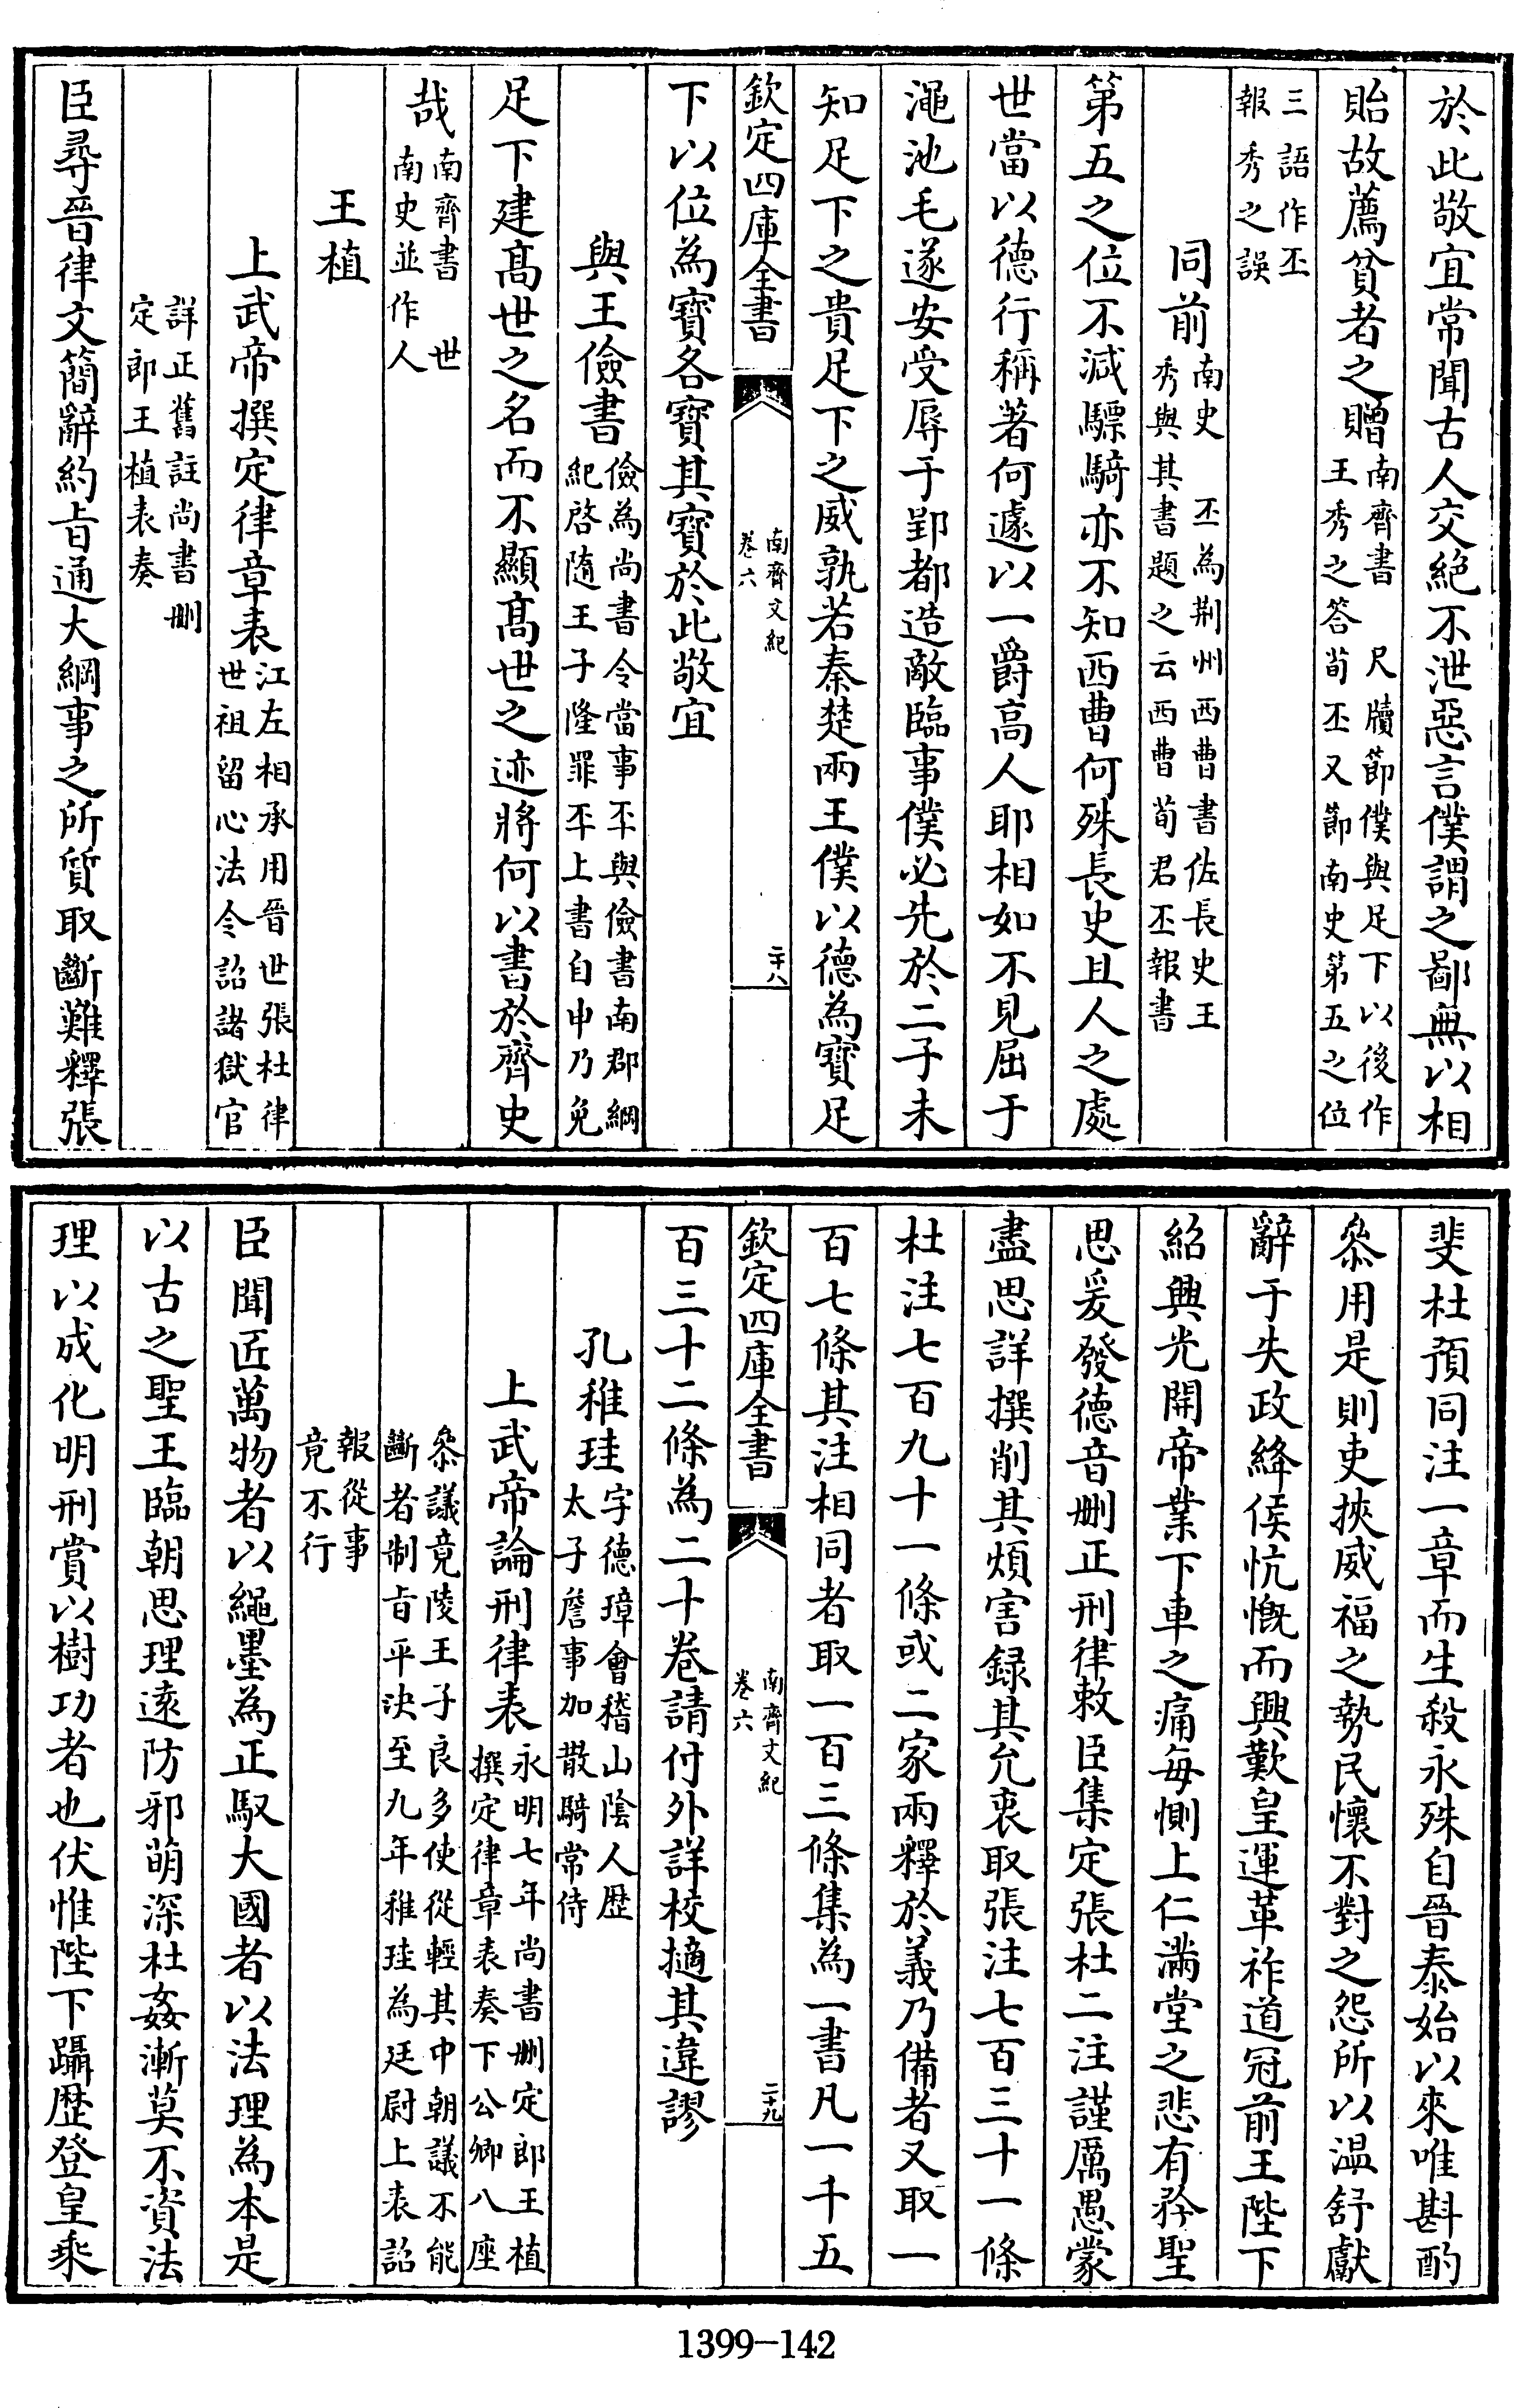 於此敬宜常聞古人交絶不泄惡言僕謂之鄙無以相
貽故薦貧者之贈南齊書 尺牘節僕與足下以後作
王秀之答荀丕又節南史第五之位
三語作丕
報秀之誤
同前南史 丕為荆州西曹書佐長史王
秀與其書題之云西曹荀君丕報書
第五之位不減驃騎亦不知西曹何殊長史且人之處
世當以德行稱著何遽以一爵高人耶相如不見屈于
澠池毛遂安受辱于郢都造敵臨事僕必先於二子未
知足下之貴足下之威孰若秦楚兩王僕以德為寶足
欽定四庫全書
南齊文紀
卷六
二十八
下以位為寶各寶其寶於此敬宜
與王儉書儉為尚書令當事丕與儉書南郡綱
紀啓隨王子隆罪丕丕上書自申乃免
足下建高世之名而不顯高世之迹將何以書於齊史
哉南齊書 世
南史並作人
王植
上武帝撰定律章表江左相承用晉世張杜律
世祖留心法令詔諸獄官
詳正舊註尚書刪
定郎王植表奏
臣尋晉律文簡辭約旨通大綱事之所質取斷難釋張
斐杜預同注一章而生殺永殊自晉泰始以來唯斟酌
叅用是則吏挾威福之勢民懷不對之怨所以温舒獻
辭于失政絳侯忼慨而興歎皇運革祚道冠前王陛下
紹興光開帝業下車之痛每惻上仁滿堂之悲有矜聖
思爰發德音刪正刑律敕臣集定張杜二注謹厲愚蒙
盡思詳撰削其煩害録其允衷取張注七百三十一條
杜注七百九十一條或二家兩釋於義乃備者又取一
百七條其注相同者取一百三條集為一書凡一千五
欽定四庫全書
南齊文紀
卷六
二十九
百三十二條為二十卷請付外詳校擿其違謬
孔稚珪字德璋會稽山陰人歴
太子詹事加散騎常侍
上武帝論刑律表永明七年尚書刪定郎王植
撰定律章表奏下公卿八座
叅議竟陵王子良多使從輕其中朝議不能
斷者制旨平決至九年稚珪為廷尉上表詔
報從事
竟不行
臣聞匠萬物者以繩墨為正馭大國者以法理為本是
以古之聖王臨朝思理遠防邪萌深杜姦漸莫不資法
理以成化明刑賞以樹功者也伏惟陛下躡歴登皇乘
1399-142